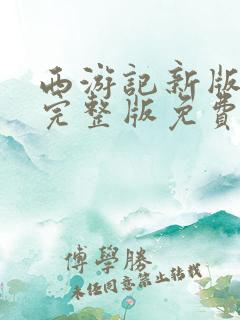 西游記新版
完整版免費
傅學勝
未经同意禁止转载